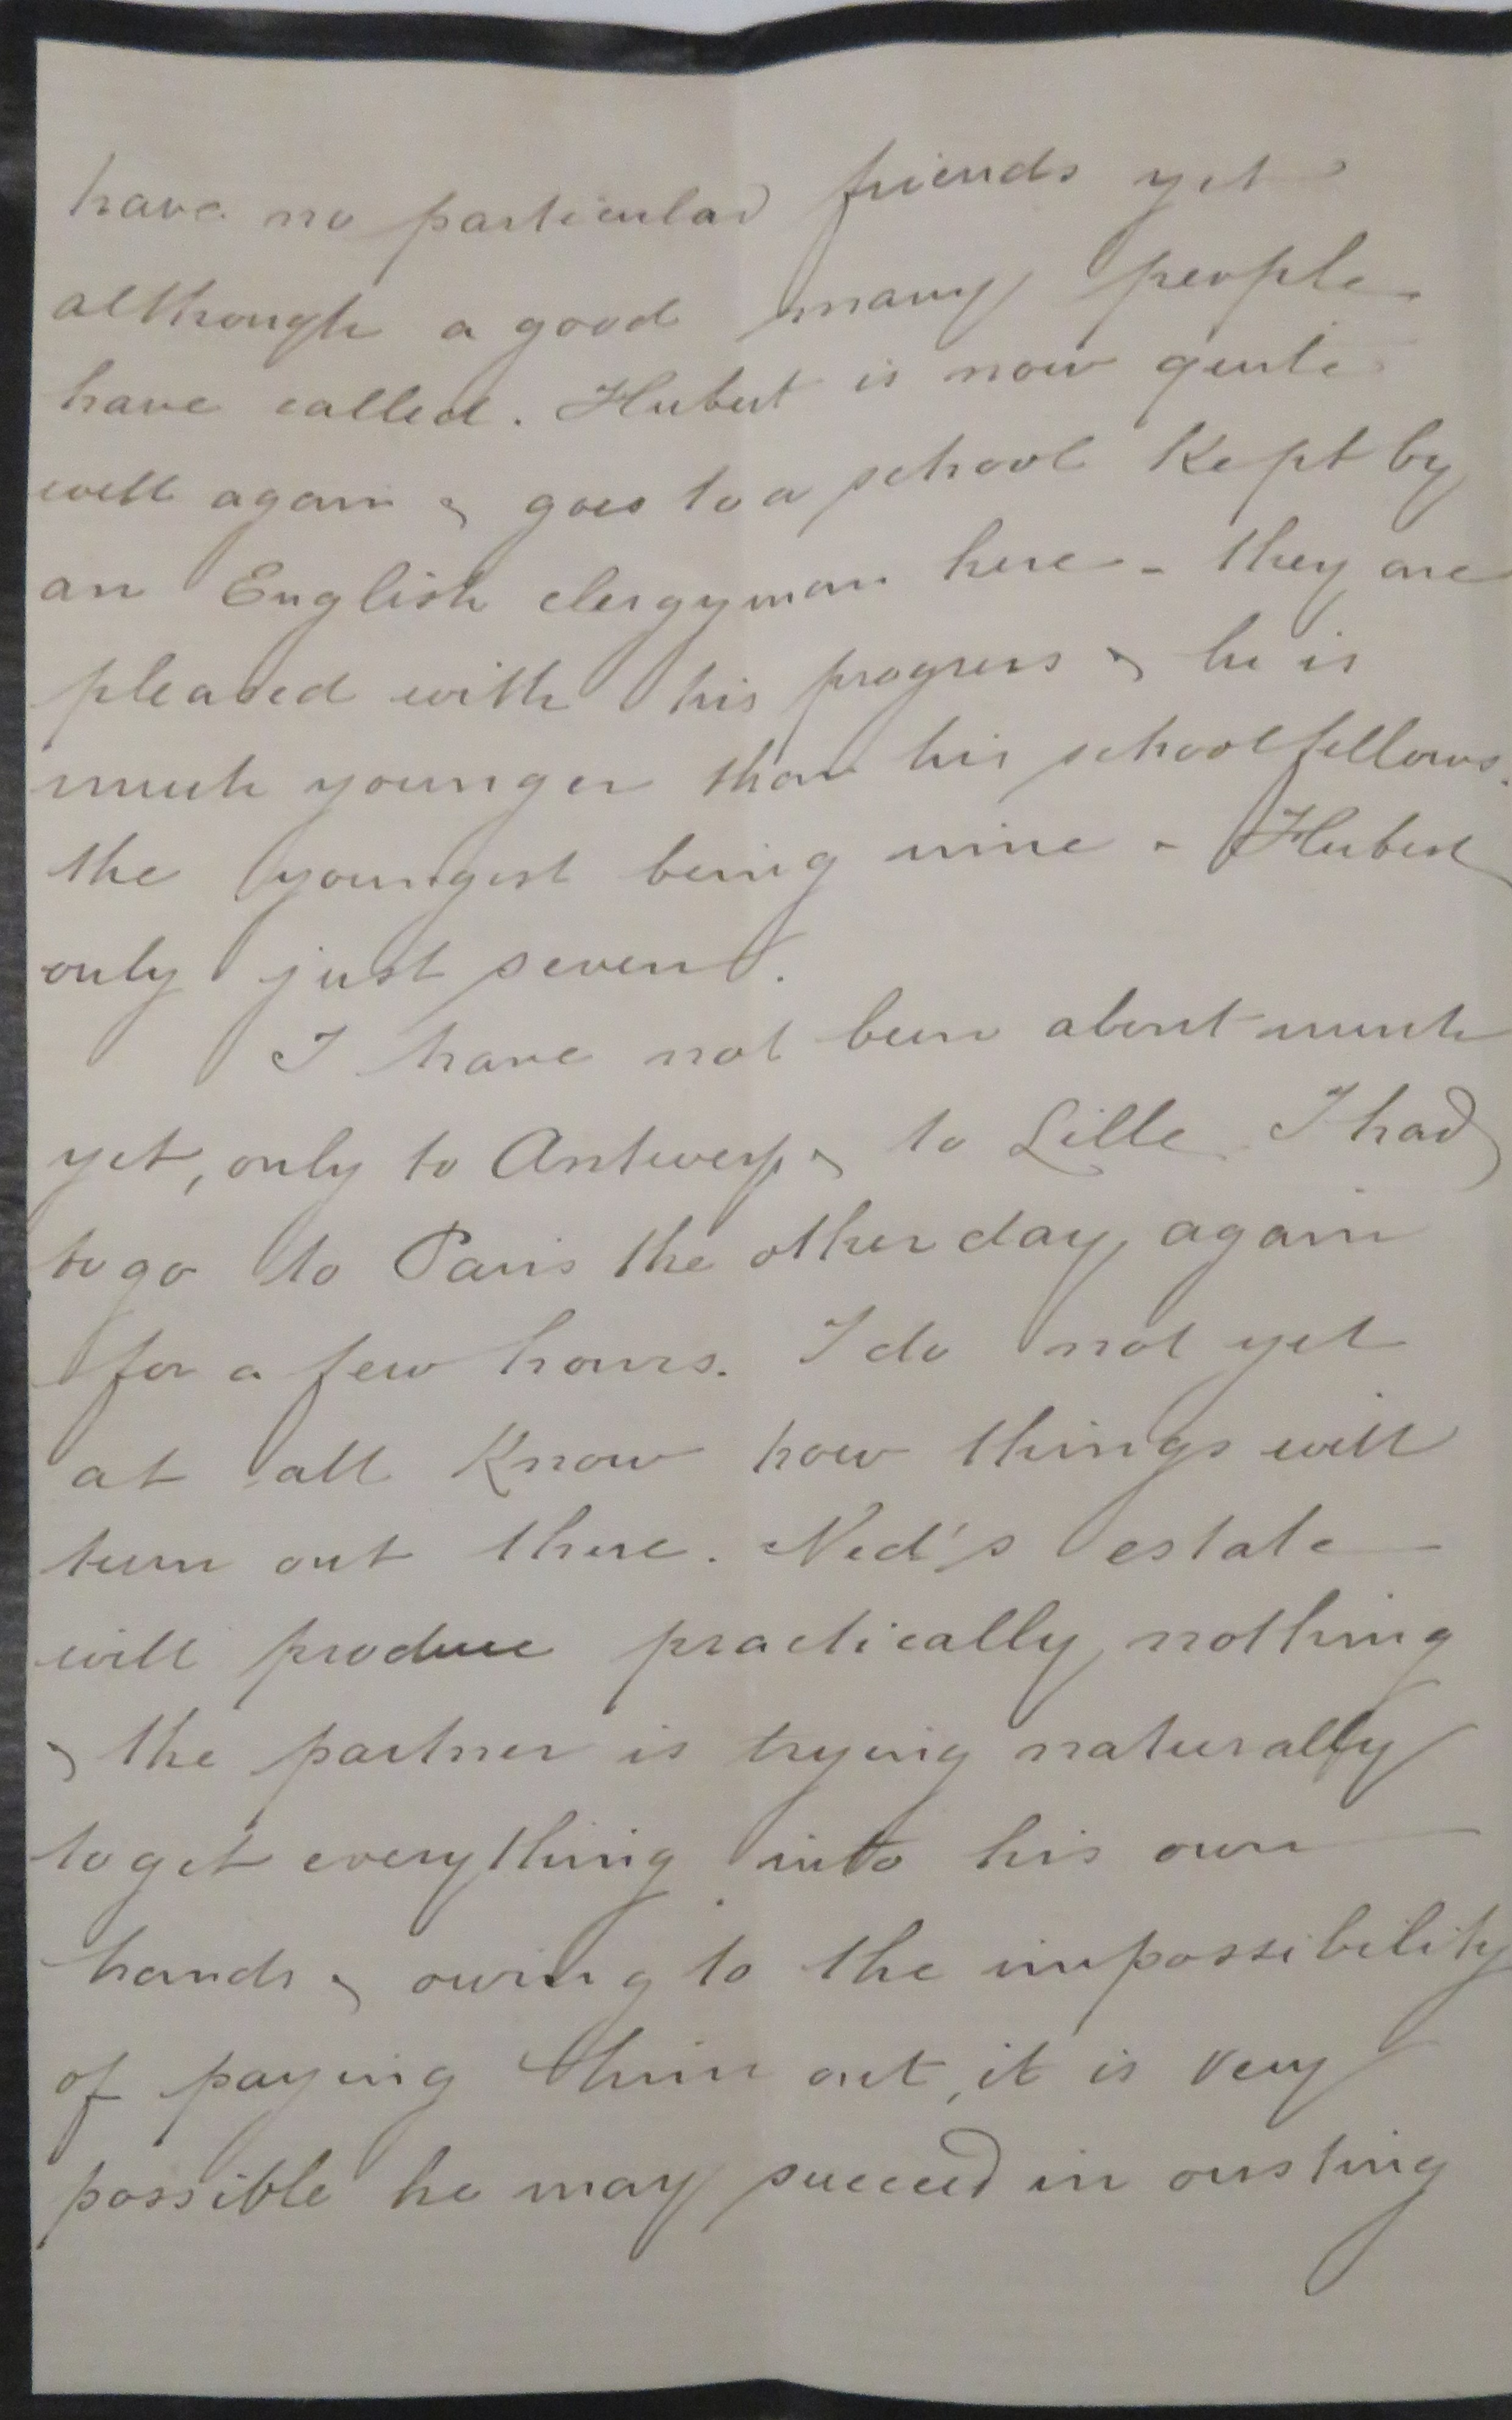 have no particular friends yet
although a good many people
have called. Hubert is now quite
well again & goes to a school kept by
an English clergyman here - they are
pleased with his progress & he is
much younger than his schoolfellows.
the youngest being nine - Hubert
only just seven.
I have not been about much
yet, only to Antwerp & to Lille. I had
to go to Paris the other day, again
for a few hours. I do not yet
at all know how things will
turn out there. Ned's estate
will produce practically nothing
& the partner is trying naturally
to get everything into his own
hands & owing to the impossibility
of paying him out, it is very
possible he may succeed in ousting